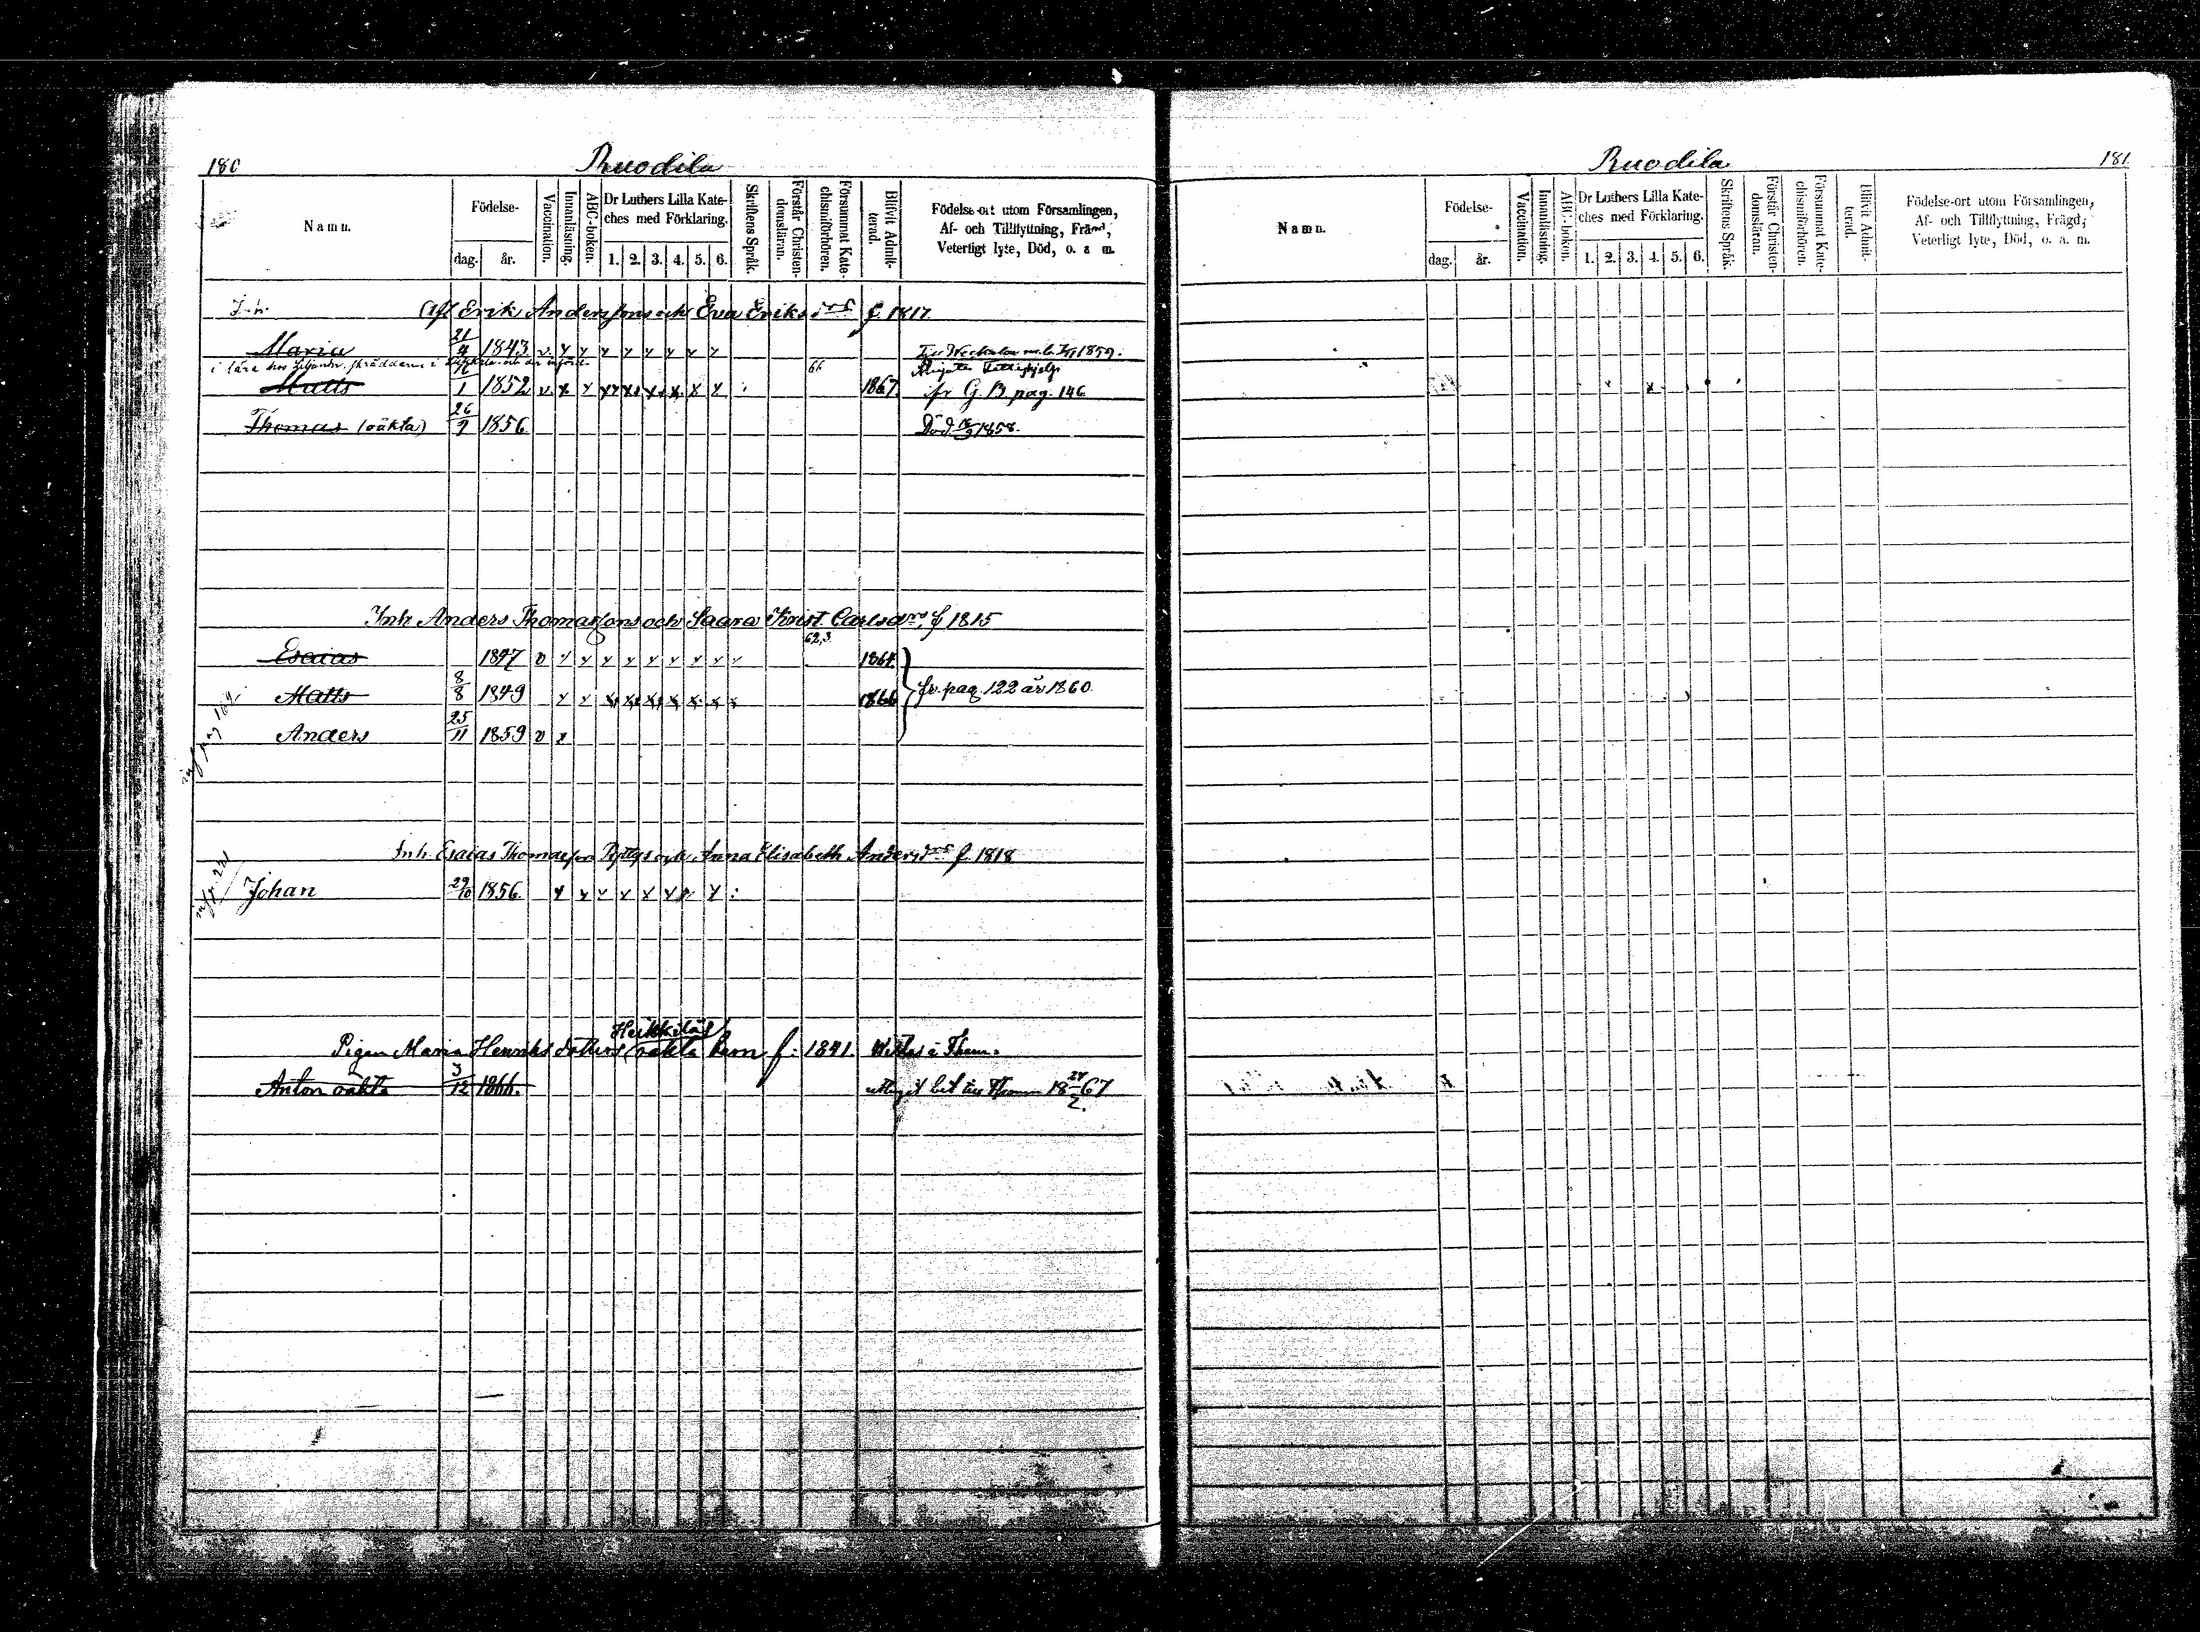 180
Ruodila
Namn.
Födelse-
dag.
år.
Vaccination.
Innanläsning.
ABC-boken.
Dr Luthers Lilla Kate-
ches med Förklaring.
1. 2. 3. 4. 5. 6.
Skriftens Språk.
Förstår Christen-
domsläran.
Försummat Kate-
chismiförhören.
Blifvit Admit-
terad.
Födelse-ort utom Församlingen,
Af- och Tillflyttning, Frägd,
Veterligt lyte, Död, o. a m.
Erik Anderssons och Eva Eriks f. 1817.
Maria 21/4 1843 v. x x x x x x x x 1859.
i lära hos
66
Matts 1 1852 v. x x x x x x x x 1867. fr G. B pag. 146
Thomas (oäkta) 26/9 1856 Död 1858.
Inh. Anders Thomassons och Saara Krist. Carlsd f 1815
62,3.
Esaias 1847 v x x x x x x x x 1864.
Matts 8/8 1849 x x x x x x x x 1866 fr. pag 122 år 1860.
Anders 25/11 1859 v x
Inh. Esaias Thomasson och Anna Elisabeth Anders f. 1818
Johan 29/10 1856. x x x x x x x x :
Heikkilä
Pigan Maria Henriksdotters (oäkta barn f: 1841.
Anton oäkta 3/12 1866. bet till 18 67
181
Ruodila
Namn.
Födelse-
dag.
år.
Vaccination.
Innanläsning.
ABC-boken.
Dr Luthers Lilla Kate-
ches med Förklaring.
1. 2. 3. 4. 5. 6.
Skriftens Språk.
Förstår Christen-
domsläran.
Försummat Kate-
chismiförhören.
Blifvit Admit-
terad.
Födelse-ort utom Församlingen,
Af- och Tillflyttning, Frägd,
Veterligt lyte, Död, o. a. m.